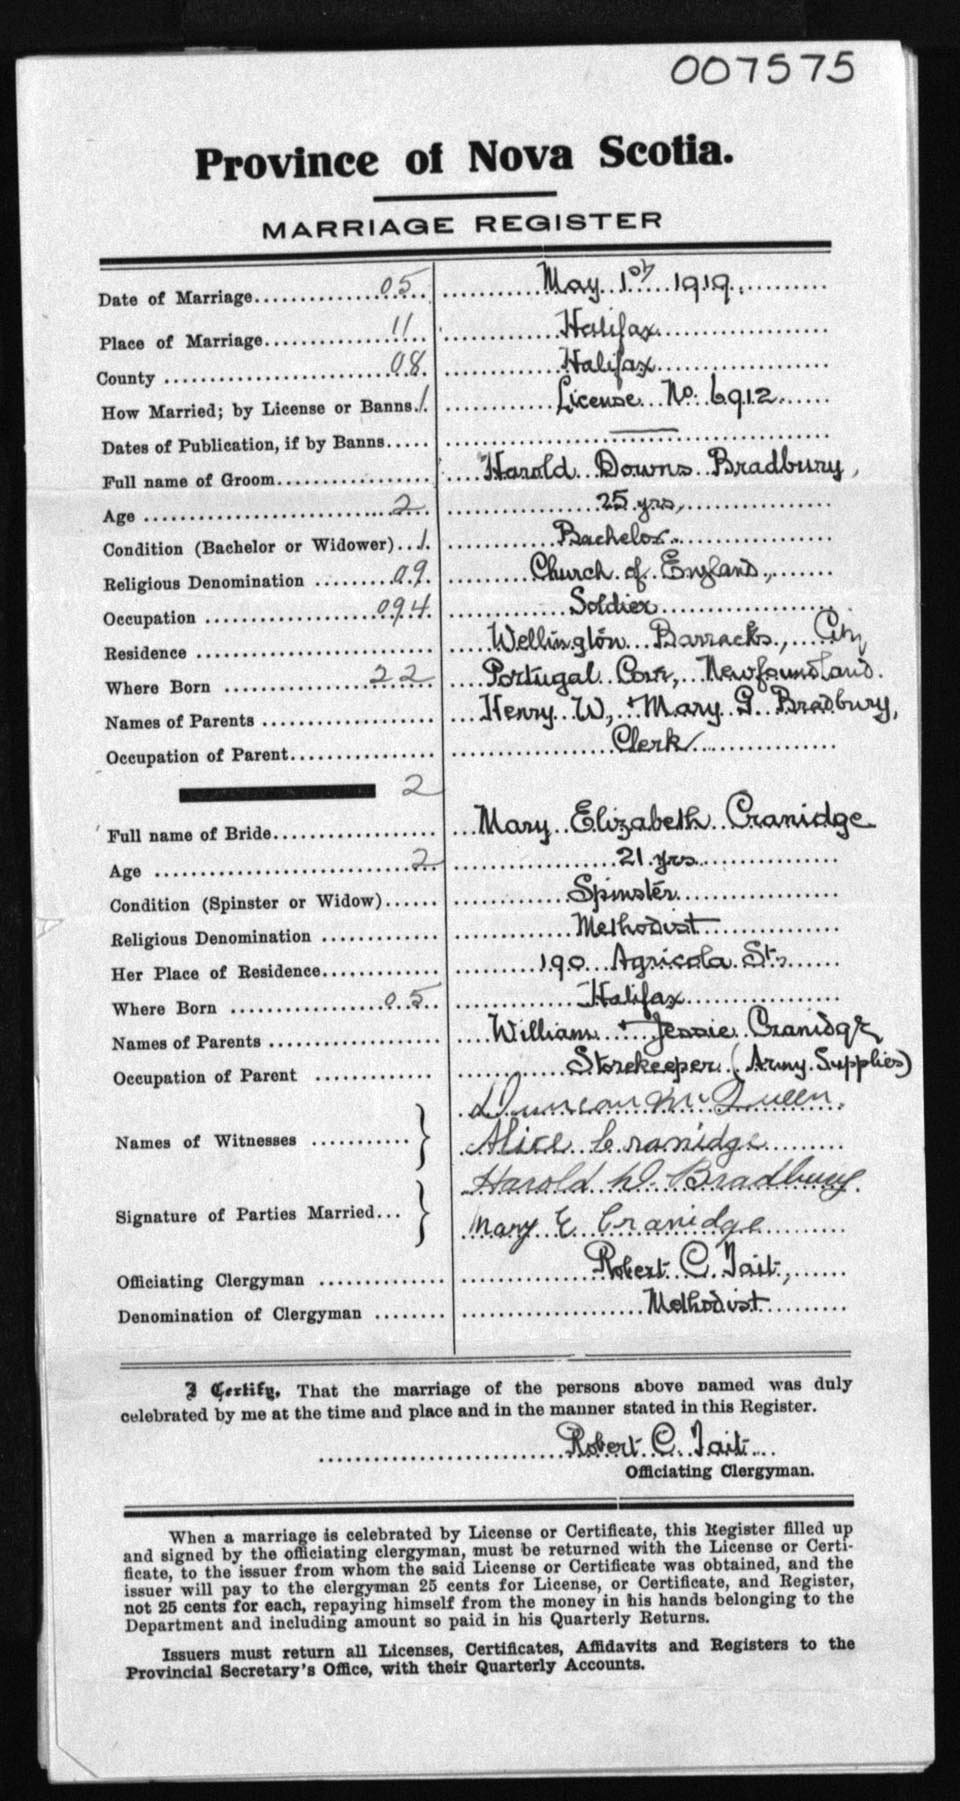 007575
Province of Nova Scotia.
MARRIAGE REGISTER
Date of Marriage 05 May 1st 1919.
Place of Marriage 11 Halifax
County 08 Halifax
How Married; by License or Banns 1 License No. 6912
Dates of Publication, if by Banns
Full name of Groom Harold Downs Bradbury,
Age 2 25 yrs,
Condition (Bachelor or Widower) 1 Bachelor
Religious Denomination 09 Church of England,
Occupation 094 Soldier
Residence Wellington Barracks, City
Where Born 22 Portugal Cove, Newfoundland.
Names of Parents Henry W, + Mary G. Bradbury,
Occupation of Parent Clerk
2
Full name of Bride Mary Elizabeth Cranidge
Age 2 21 yrs
Condition (Spinster or Widow) Spinster
Religious Denomination Methodist
Her Place of Residence 190 Agricola St.,
Where Born 05 Halifax
Names of Parents William + Jessie Cranidge
Occupation of Parent Storekeeper (Army Supplies)
Duncan McQueen.
Names of Witnesses Alice Cranidge
Harold D. Bradbury.
Signature of Parties Married Mary E Cranidge
Officiating Clergyman Robert C. Tait,
Denomination of Clergyman Methodist
I Certify, That the marriage of the persons above named was duly
celebrated by me at the time and place and in the manner stated in this Register.
Robert C. Tait
Officiating Clergyman.
When a marriage is celebrated by License or Certificate, this Register filled up
and signed by the officiating clergyman, must be returned with the License or Certi-
ficate, to the issuer from whom the said License or Certificate was obtained, and the
issuer will pay to the clergyman 25 cents for License, or Certificate, and Register,
not 25 cents for each, repaying himself from the money in his hands belonging to the
Department and including amount so paid in his Quarterly Returns.
Issuers must return all Licenses, Certificates, Affidavits and Registers to the
Provincial Secretary's Office, with their Quarterly Accounts.